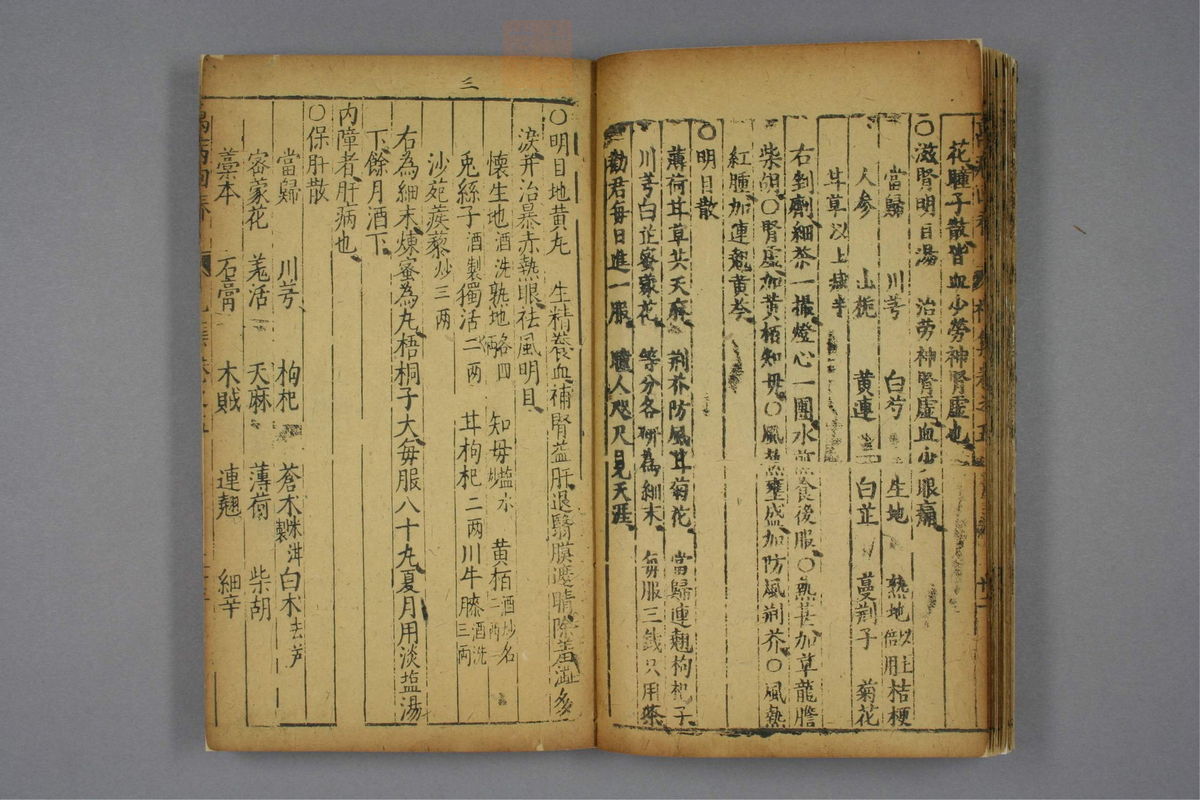 花瞳子散皆血少勞神腎虛也
○滋腎明目湯 治勞神腎虛血少眼痛
當歸 川芎 白芍 生地 熟地 以上倍用 桔梗
人參 山梔 黃連 白芷 蔓荊子 菊花
甘草以上減半
右剉劑細茶一撮燈心一團水煎食後服○熱甚加草龍膽
柴胡○腎虛加黃栢知母○風熱壅盛加防風荊芥○風熱
紅腫加連翹黃芩
○明目散
薄荷甘草共天麻 荊芥防風甘菊花 當歸連翹枸杞子
川芎白芷蜜蒙花 等分各研為細末 每服三錢只用茶
勸君每日進一服 瞳人咫尺見天涯
三
○明目地黃丸 生精養血補腎益肝退翳膜遮睛除羞澀多
淚并治暴赤熱眼祛風明目
懷生地酒洗 熟地各四兩 知母塩水炒 黃栢酒炒各二兩
兎絲子酒製 獨活二兩 甘枸杞二兩 川牛膝酒洗三兩
沙苑蒺藜炒三兩
右為細末煉蜜為丸梧桐子大每服八十丸夏月用淡塩湯
下餘月酒下
內障者肝病也
○保肝散
當歸 川芎 枸杞 蒼术米泔製 白术去芦
密蒙花 羌活 天麻 薄荷 柴胡
藁本 石膏 木賊 連翹 細辛
萬病回春